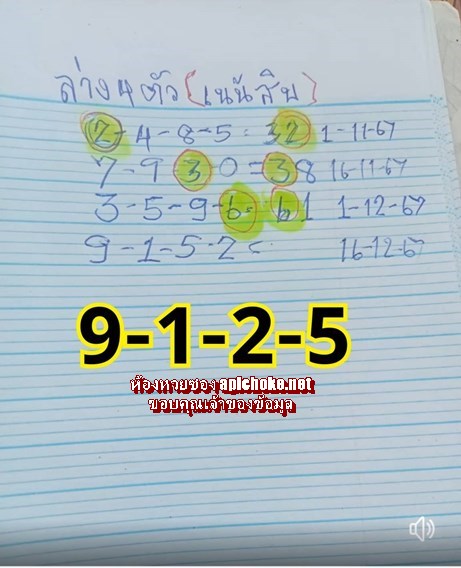 ล่าง 4 ตัว (เน้นสิบ)
2-4-8-5 = 32 1-11-67
7-9 3-0 = 38 16-11-67
3-5-9-6 = 61 1-12-67
9-1-5-2 = 16-12-67
9-1-2-5
ห้องหวยซอง apichoke.net
ขอบคุณเจ้าของข้อมุล